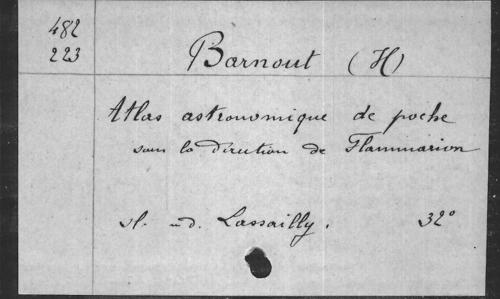 482
223
Barnout (H)
Atlas astronomique de poche
sous la direction de Flammarion
sl. nd. Lassailly. 32°